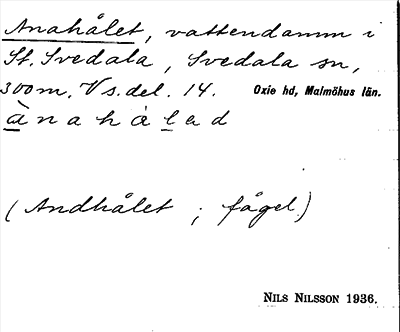 Anahålet, vattendamm i
St. Svedala, Svedala sn,
300 m. V s. del. 14. Oxie hd, Malmöhus län.
ànahålad
(Andhålet ; fågel.)
NILS NILSSON 1936.